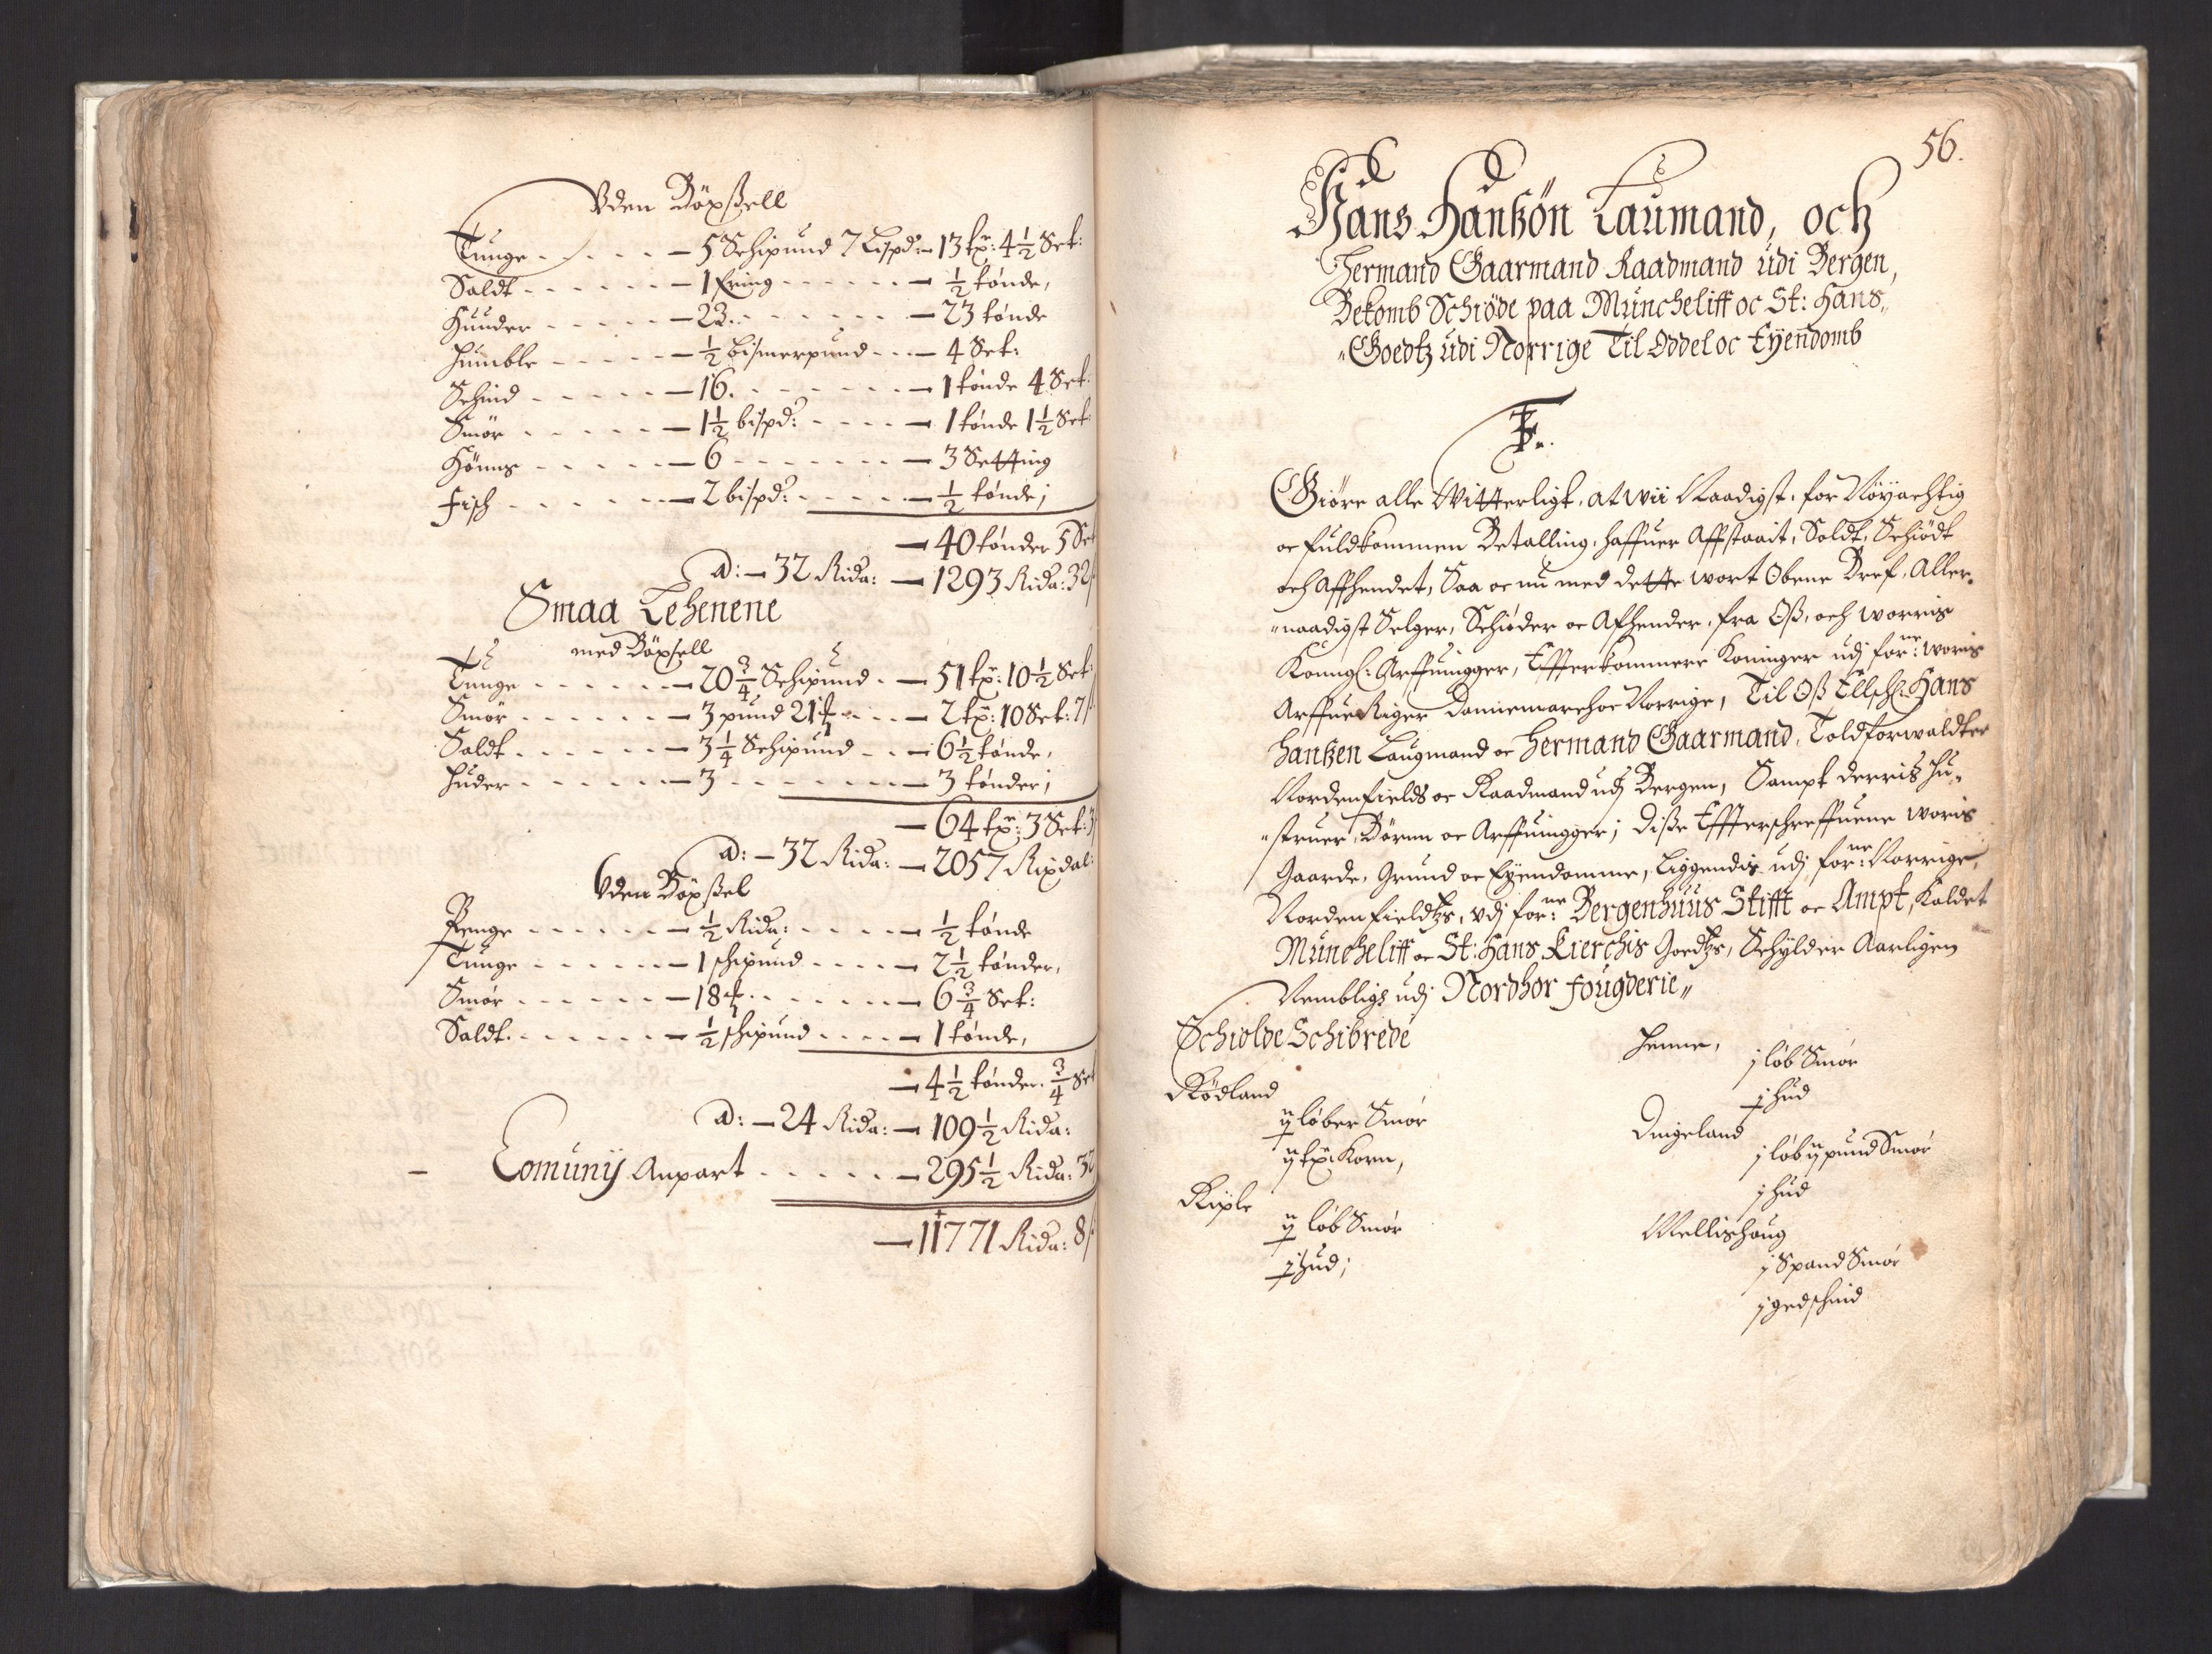 Vden Böxßell
Tunge - - - - - 5 Schipund 7 Lispd: - 13 tr: 4 1/2 Set:
Saldt - - - - - 1 Pring - - - - - 1/2 tønde,
Huuder - - - - - 23. - - - - - 23 tønde
Humble - - - - - 1/2 bismerpund - - - 4 Set:
Schind - - - - - 16. - - - - - 1 tønde 4 Set:
Smör - - - - - 1 1/2 bispd: - - - - 1 tønde 1 1/2 Set
Hönns - - - - - 6 - - - - - 3 Setting
Fisch - - - - - 2 bispd: - - - - - 1/2 tønde;
- 40 tønder 5 Set
a: - 32 Rida: - 1293 Rida: 32 ß
Smaa Lehenene
med Böxsell
Tunge - - - - - 20 3/4 Schipund - - 51 tr: 10 1/2 Set
Smör - - - - - 3 pund 21 - - - 2 tr: 10 Set: 7
Saldt - - - - - 3 1/4 Schipund - - 6 1/2 tønde,
Huder - - - - - 3 - - - - - 3 tønder;
- 64 tr: 3 Set: 3
a: - 32 Rida: - 2057 Rixdal:
Vden Böxßel
Penge - - - - - 1/2 Rida: - - - - 1/2 tønde
Tunge - - - - - 1 schipund - - - - 2 1/2 tønder,
Smör - - - - - 18 - - - - - 6 3/4 Set:
Saldt. - - - - - 1/2 schipund - - - - 1 tønde,
- 4 1/2 tønder. 3/4 Set
a: - 24 Rida: - 109 1/2 Rida:
- Comunij Anpart - - - - - 295 1/2 Rida: 32
- 11771 Rida: 8 ß
56.
Hans Hanßön Laumand, och
Hermand Gaarmand Raadmand udi Bergen,
Bekomb Schiöde paa Müncheliff oc St: Hans,,
,,Goedtz udi Norrige Til Oddel oc Eyendomb
F.
Giöre alle Witterligt, at wii Naadigst, for Nöyachtig
oc fuldkommen Betalling, haffuer Affstaait, Soldt, Schiödt
och Affhendet, Saa oc nu med dette wort Obene Bref, Aller-
,,naadigst Selger, Schiöder oc Afhender, fra Oß, och worris
Konngl: Arffuingger, Effterkommere Koninger udj forne: woris
Arffue Riger Dannemarch oc Norrige, Til Oß Ellschl: Hans
Hanßen Laugmand oc Hermand Gaarmand, Toldforwaldter
Nordenfields oc Raadmand udj Bergen, Sampt derris Hu-
,,struer, Börnn oc Arffuingger; Diße Effterschreffuene woris
Gaarde, Grund oc Eyendomme, Liggendis udj forne: Norrige,
Nordenfieldtzs, udj forne: Bergenhuus Stifft oc Ampt, Kaldet
Müncheliff oc St: Hans Kierchis Goedtzs, Schylder Aarligen
Nembligs udj Nordhor fougderie,,
Schiolde Schibrede
Rödland
ij löber Smör
ij tr: Korn,
Kiple
ij löb Smör
j Hud;
Henne,
j löb Smör
j Hud
Dingeland
j löb ij pund Smör
j Hud
Mellishoug
j Spand Smör
j gedschind